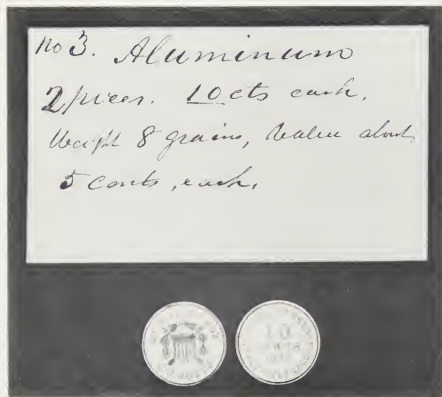 No 3. Aluminum
2 pieces. 10 cts each.
Weight 8 grains, Value about
5 cents, each.
10
CENTS